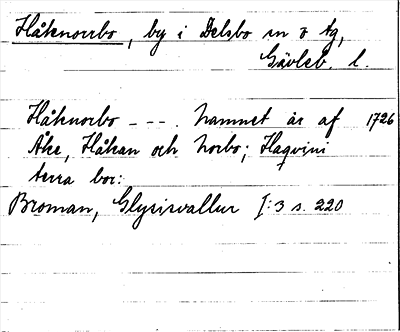 Håknorrbo, by i Delsbo sn o tg,
Gävleb. l.
Håknorbo - - - . Namnet är af 1726
Åke, Håkan och Norbo; Haqvini
terra bor:
Broman, Glysisvallur I:3 s. 220